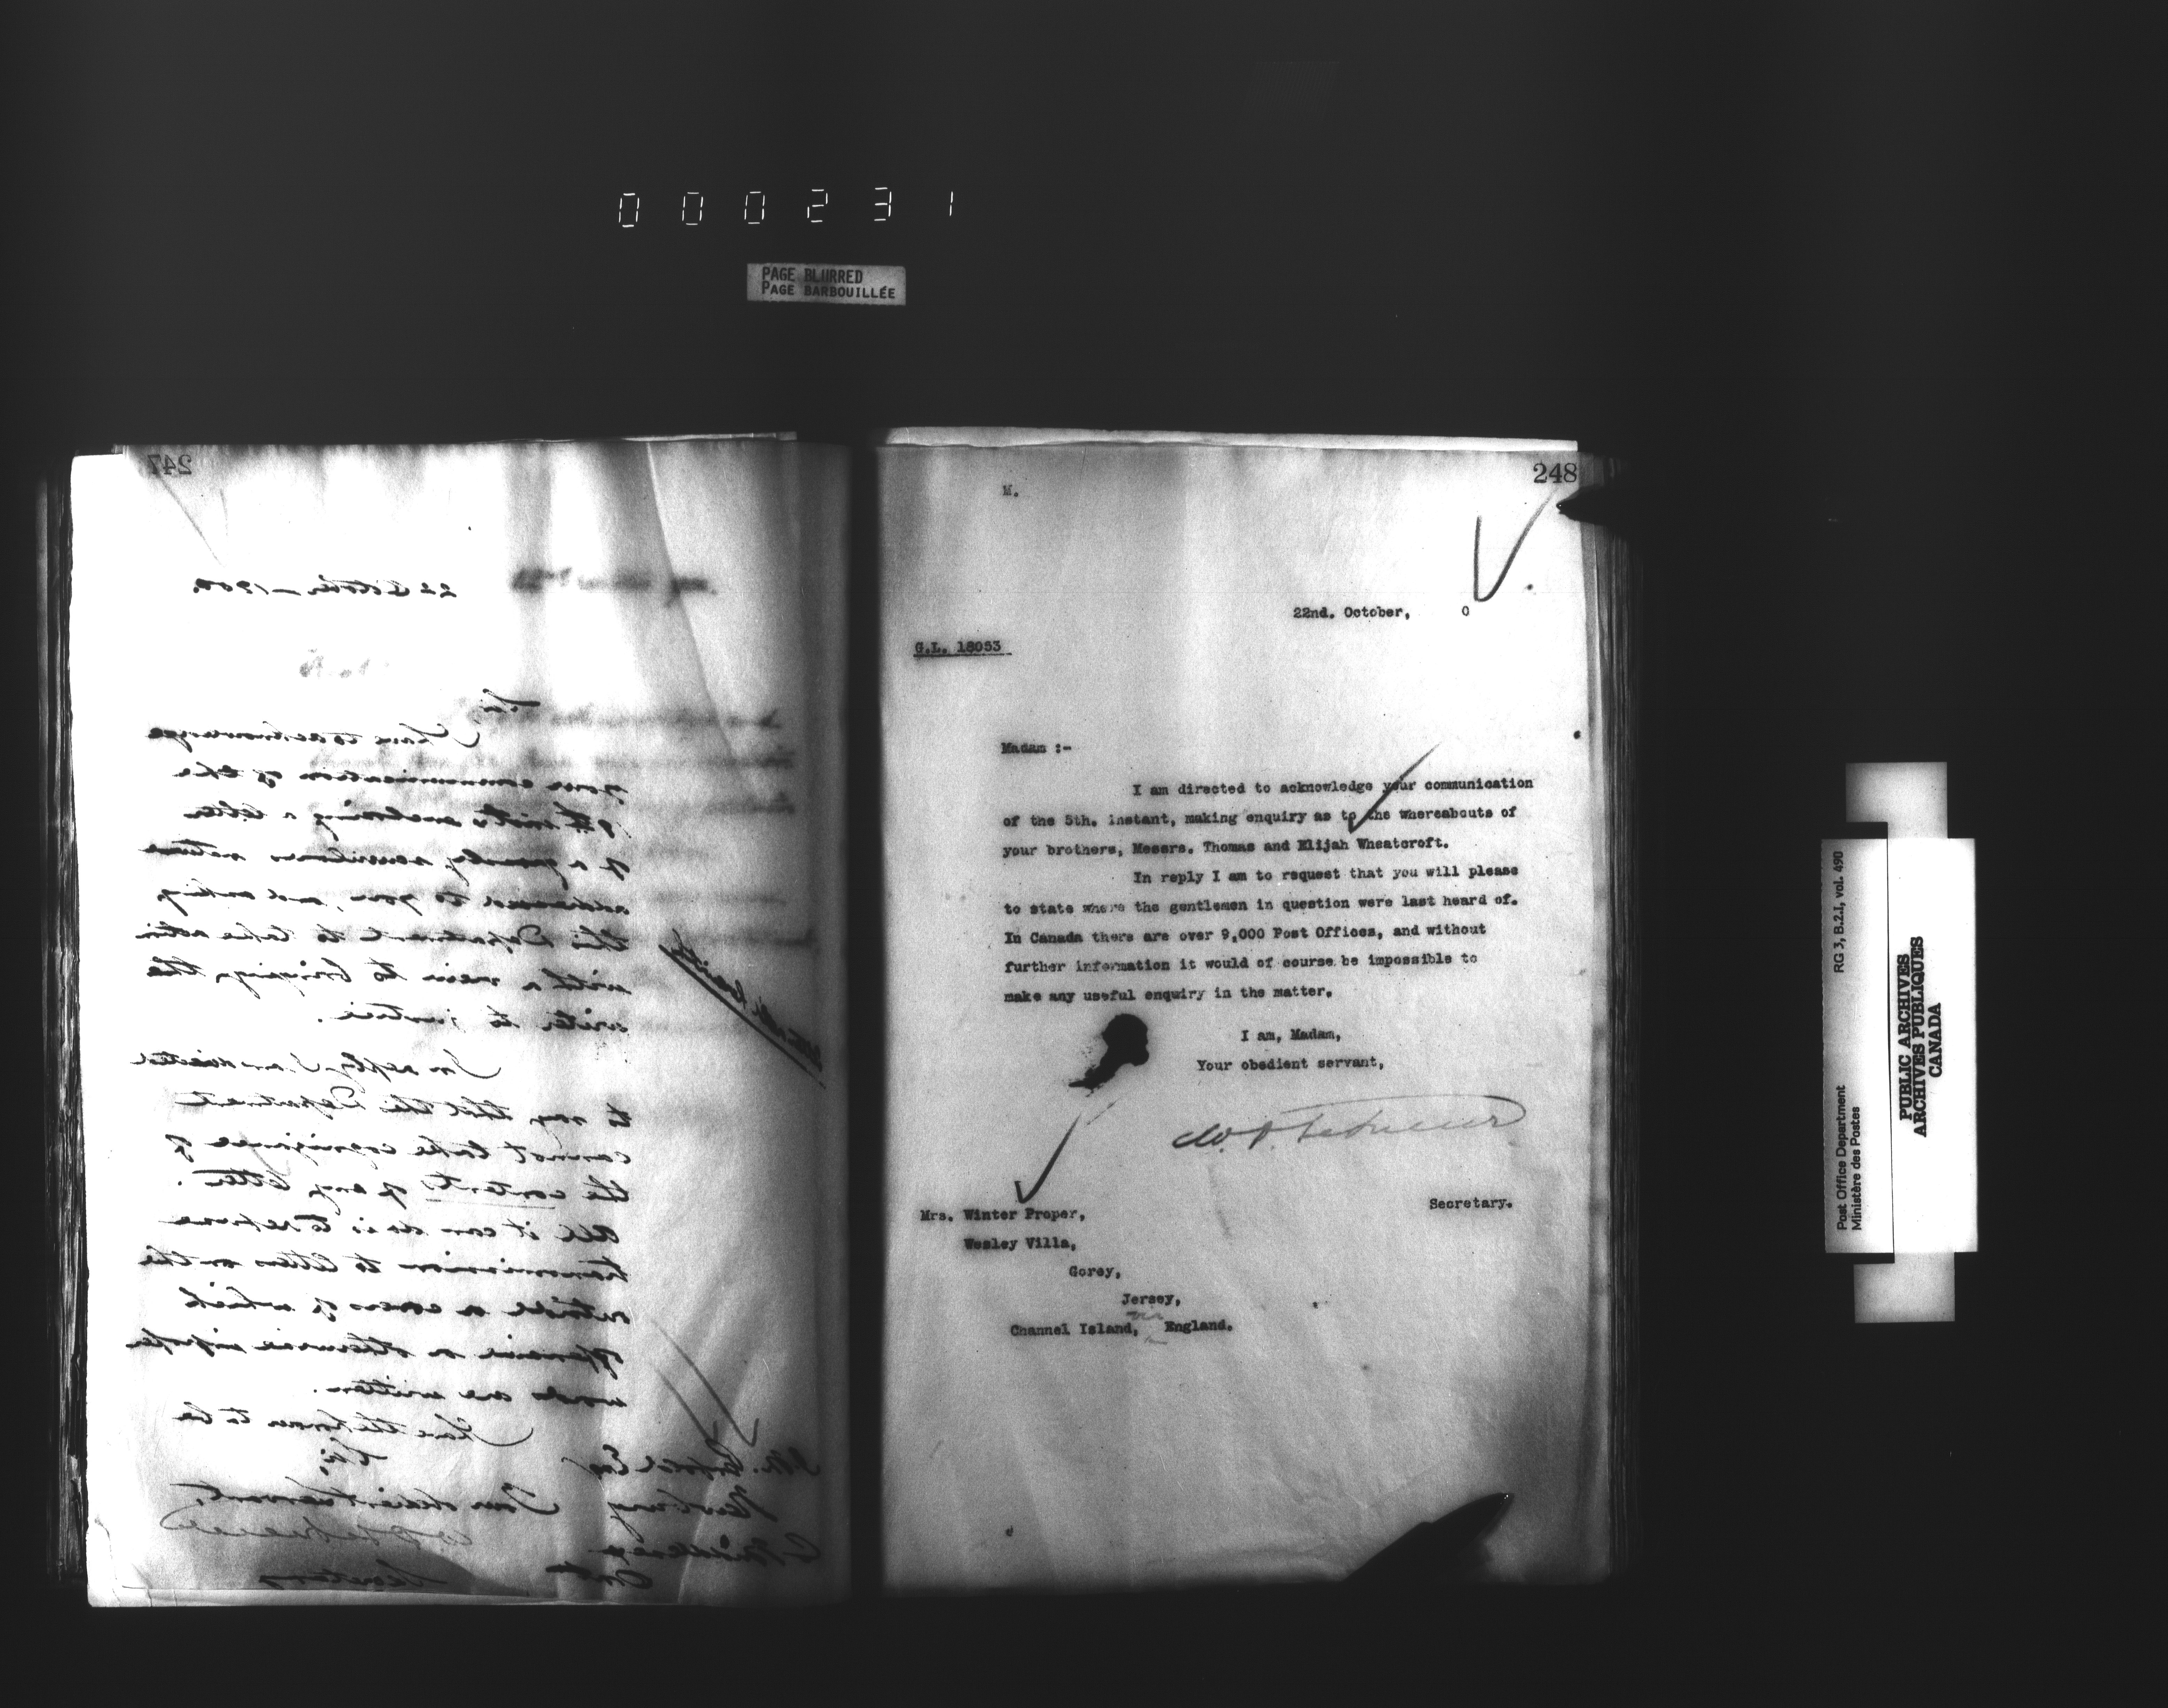 0 0 0 2 3 1
PAGE BLURRED
PAGE BARBOUILLÉE
247
22 October 1900.
Sir,
I have to acknowledge
your communication of the
9th inst. enclosing a letter
of a grossly scurrilous nature
addressed to you, and asking
this Department to take action
with a view to bringing the
writer to justice.
In reply I am directed
to say that this Department
cannot take cognizance of
the contents of any letter.
All it can do is to refuse
transmission to letters on the
outside or covers of which
offensive or otherwise improper
words are written.
I have the honor to be
Sir,
Your obedient servant,
Secretary
Newbury
Middlesex
Ont
248
M.
22nd. October, 0
G.L. 18053
Madam :-
I am directed to acknowledge your communication
of the 5th. instant, making enquiry as to the whereabouts of
your brothers, Messrs. Thomas and Elijah Wheatcroft.
In reply I am to request that you will please
to state where the gentlemen in question were last heard of.
In Canada there are over 9,000 Post Offices, and without
further information it would of course be impossible to
make any useful enquiry in the matter.
I am, Madam,
Your obedient servant,
Secretary.
Mrs. Winter Proper,
Wesley Villa,
Gorey,
Jersey,
Channel Island, via England.
Post Office Department
Ministère des Postes
RG 3, B.2.I, vol. 490
PUBLIC ARCHIVES
ARCHIVES PUBLIQUES
CANADA